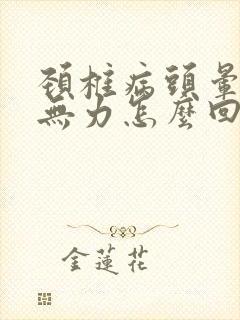 頚椎病頭暈
無力怎麼回
金蓮花